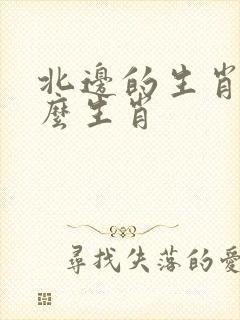 北邊的生肖
麼生肖
尋找失落的愛